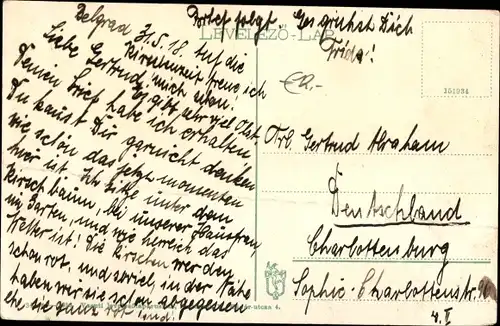 Belgrad 31/5.18.
Brief folgt. Es grüsst Dich
Frida!
LEVELEZŐ-LAP.
Liebe Gertrud! Auf die
Kirschenzeit freue ich
mich schon!
Es gibt sehr viel Obst.
Deinen Brief habe ich erhalten
Du kannst Dir garnicht denken
wie schön das jetzt momentan
hier ist. Ich sitze unter dem
Kirschbaum, bei unserer Hausfrau,
im Garten, und wie herrlich das
Wetter ist! Die Kirschen werden
schon rot, und soviel, in der Nähe
haben wir sie schon abgegessen
ehe sie ganz rot sind!
351234
Frl. Gertrud Abraham
Deutschland
Charlottenburg
Sophie-Charlottenstr.
4. I
utcza 4.